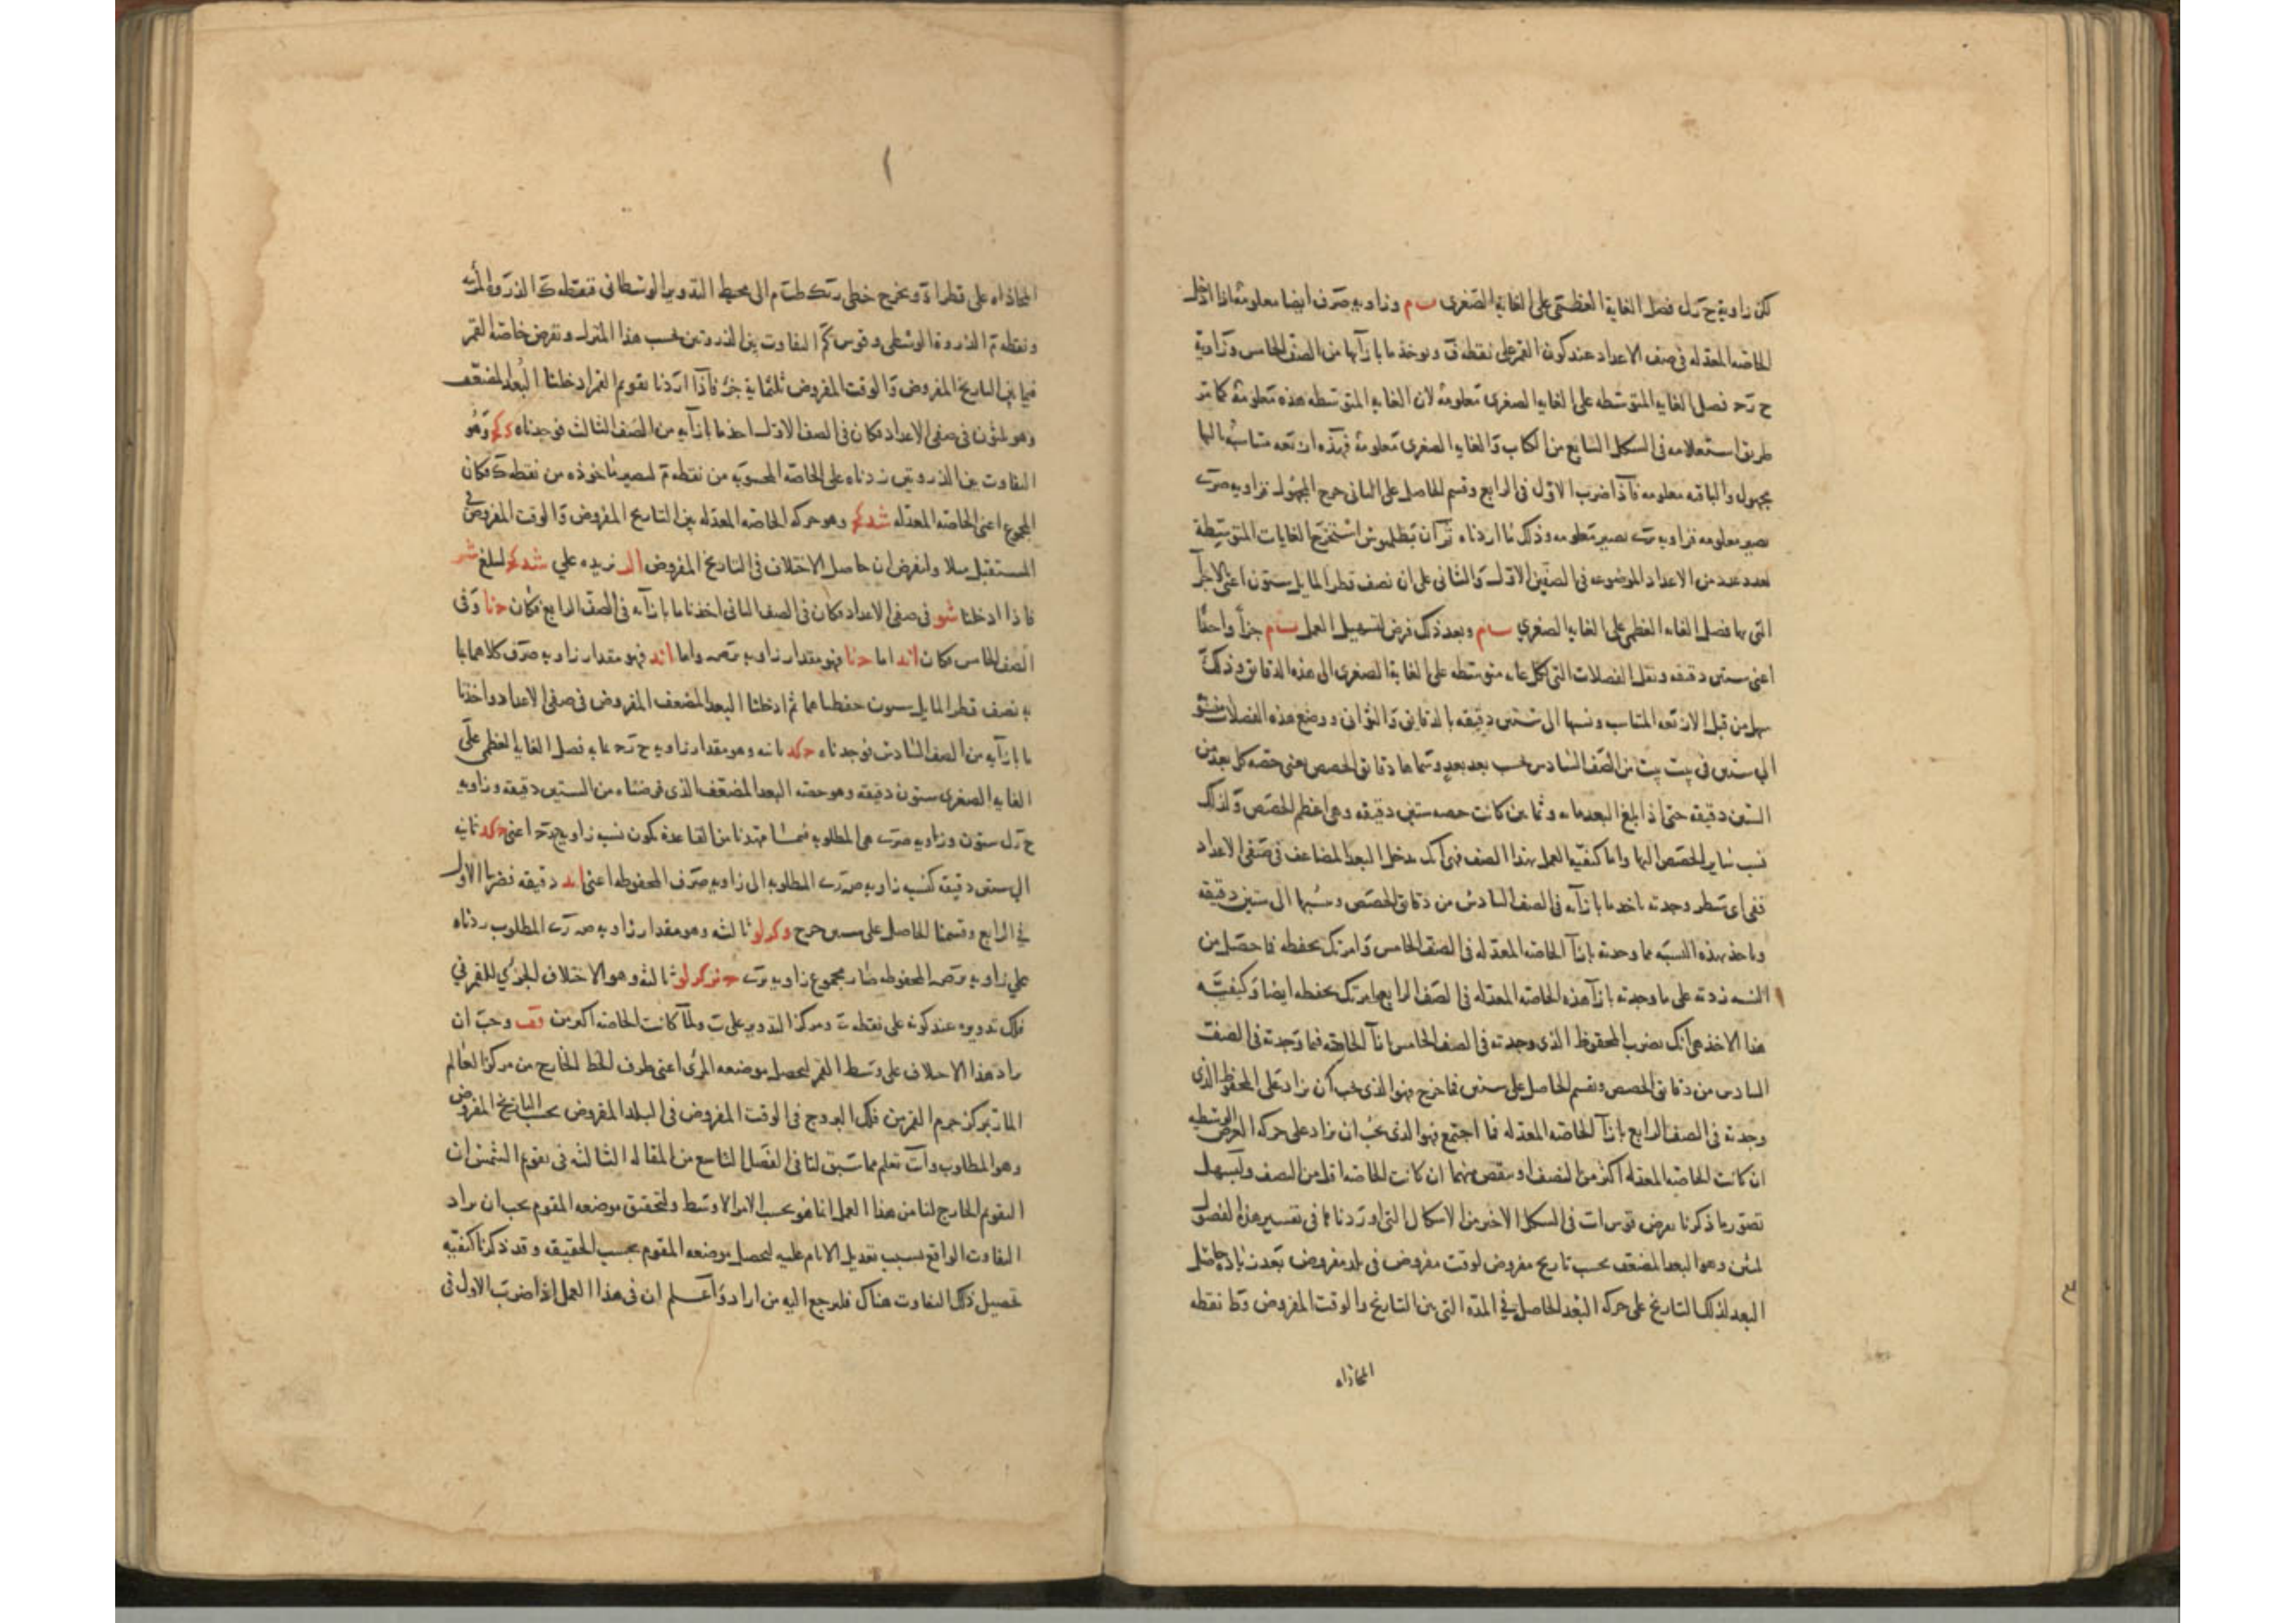 لكن زاوية ح ر ل فضل الغاية العظمى على الغاية الصغرى وزاوية صرف ايضا معلومة اذا ادخل
الخاصه المعدله فى صف الاعداد عند كون القمر على نقطه ف ويوخذ ما بازآيها من الصف الخامس وزاوية
ح رح فضل الغايه المتوسطه على الغايه الصغرى معلومة لان الغايه المتوسطه هذه معلومة كما مر
طريق استعلامه فى الشكل السابع من الكتاب والغايه الصغرى معلومة فهذه اربعه متناسبه اولها
مجهول والباقيه معلومه فاذا ضرب الاول فى الرابع وقسم الحاصل على الثانى خرج المجهول فزاويه صرت
يصير معلومه فزاويه تصير معلومه وذلك ما اردناه ثم ان بطلميوس استخرج الغايات المتوسطة
لعدد عدد من الاعداد الموضوعه فى الصفين الاول والثانى على ان نصف قطر المايل ستون اعنى الاجزآ
التى بها فضل الغايه العظمى على الغايه الصغرى وبعد ذلك فرض لتسهيل العمل جزأ واحدا
اعنى ستين دقيقه ونقل الفضلات التى لكل غايه متوسطه على الغاية الصغرى الى هذه الدقايق وذلك
سهل من قبل الاربعه المتناسبه ونسبها الى ستين دقيقه بالدقايق والثوانى ووضع هذه الفضلات
الى ستين فى بيت بيت من الصف السادس بحسب بعد بعد وسماها دقايق الحصص يعنى حصه كل بعد من
الستين دقيقه حتى اذا بلغ البعد مايه وثمانين كانت حصه ستين دقيقه وهى اعظم الحصص ولذلك
نسب ساير الحصص اليها واما كيفيه العمل بهذا الصف فهى انك تدخل البعد المضاعف فى صفى الاعداد
ففى اى سطر وجدته تاخذ ما بازآيه فى الصف السادس من دقايق الحصص ونسبها الى ستين دقيقه
وتاخذ بهذه النسبه مما وجدته بازآ الخاصه المعدله فى الصف الخامس وامرتك بحفظه فما حصل من
النسبه زدته على ما وجدته بازآ هذه الخاصه المعدله فى الصف الرابع وامرتك بحفظه ايضا وكيفية
هذا الاخذ هى انك تضرب المحفوظ الذى وجدته فى الصف الخامس بازآ الخاصه فيما وجدته فى الصف
السادس من دقايق الحصص وتقسم الحاصل على ستين فما خرج فهو الذى يجب ان يزاد على المحفوظ الذى
وجدته فى الصف الرابع بازآ الخاصه المعدله فما اجتمع فهو الذى يجب ان يزاد على حركه العرض الوسطيه
ان كانت الخاصه المعدله اكثر من النصف او ينقص منها ان كانت الخاصه اقل من النصف وليسهل
تصور ما ذكرنا نفرض قوس ات فى الشكل الاخير من الاشكال التى اوردناها فى تفسير هذا الفصل
لمثن وهو البعد المضعف بحسب تاريخ مفروض لوقت مفروض فى بلد مفروض بعدت زيادة حاصل
البعد لذلك التاريخ على حركه البعد الحاصل فى المدة التى بين التاريخ والوقت المفروض و ط نقطه
المحاذاه
المحاذاه على قطر اه ونخرج خطى الى محيط التدوير الوسطانى فنقطه ك الذروة المرئيه
ونقطه م الذروة الوسطى وقوس كم التفاوت بين الذروتين بحسب هذا المنزل ونفرض خاصه القمر
فيما بين التاريخ المفروض والوقت المفروض ثلثماية جزء فاذا اردنا تقويم القمر ادخلنا البعد المضعف
وهو لمثن فى صفى الاعداد فكان فى الصف الاول اخذ ما بازآيه من الصف الثالث فوجدناه وهو
التفاوت بين الذروتين زدناه على الخاصه المحسوبه من نقطه م لتصير ماخوذه من نقطه ك فكان
المجموع اعنى الخاصه المعدله شدكح وهو حركه الخاصه المعدله بين التاريخ المفروض والوقت المفروض فى
المستقبل مثلا ولنفرض ان حاصل الاختلاف فى التاريخ المفروض نزيده على شدكح ليبلغ
فاذا ادخلنا شو فى صفى الاعداد فكان فى الصف الثانى اخذنا ما بازآيه فى الصف الرابع فكان حنا وفى
الصف الخامس فكان اند اما حنا فهو مقدار زاويه واما اند فهو مقدار زاويه صرف كلاهما بما
به نصف قطر المايل ستون حفظناهما ثم ادخلنا البعد المضعف المفروض فى صفى الاعداد واخذنا
ما بازآيه من الصف السادس فوجدناه حكد ثانيه وهو مقدار زاويه ح رح بما به فضل الغايه العظمى على
الغايه الصغرى ستون دقيقه وهو حصه البعد المضعف الذى فرضناه من الستين دقيقه وزاويه
ح رل ستون وزاويه صرت هى المطلوبه فمما مهدنا من القاعدة يكون نسبه زاويه اعنى حكد ثانيه
الى ستين دقيقه كنسبه زاويه صرت المطلوبه الى زاويه صرف المحفوظه اعنى اند دقيقه فضربنا الاول
فى الرابع وقسمنا الحاصل على ستين خرج وكرلو ثالثه وهو مقدار زاويه صرت المطلوب زدناه
على زاويه المحفوظه صار مجموع زاويه ثالثه وهو الاختلاف الجزئى للقمر فى
فلك تدويره عند كونه على نقطه ومركز التدوير على ب ولما كانت الخاصه اكثر من قف وجب ان
يزاد هذا الاختلاف على وسط القمر ليحصل موضعه المرئى اعنى طرف الخط الخارج من مركز العالم
المار بمركز جرم القمر من فلك البروج فى الوقت المفروض فى البلد المفروض بحسب التاريخ المفروض
وهو المطلوب وانت تعلم مما سبق لنا فى الفصل التاسع من المقاله الثالثه فى تقويم الشمس ان
التقويم الخارج لنا من هذا العمل انما هو بحسب الامر الاوسط ولتحقيق موضعه المقوم يجب ان يزاد
التفاوت الواقع بسبب تعديل الايام عليه ليحصل موضعه المقوم بحسب الحقيقه وقد ذكرنا كيفيه
تحصيل ذلك التفاوت هناك فليرجع اليه من اراد واعلم ان فى هذا العمل اذا ضرب الاول فى